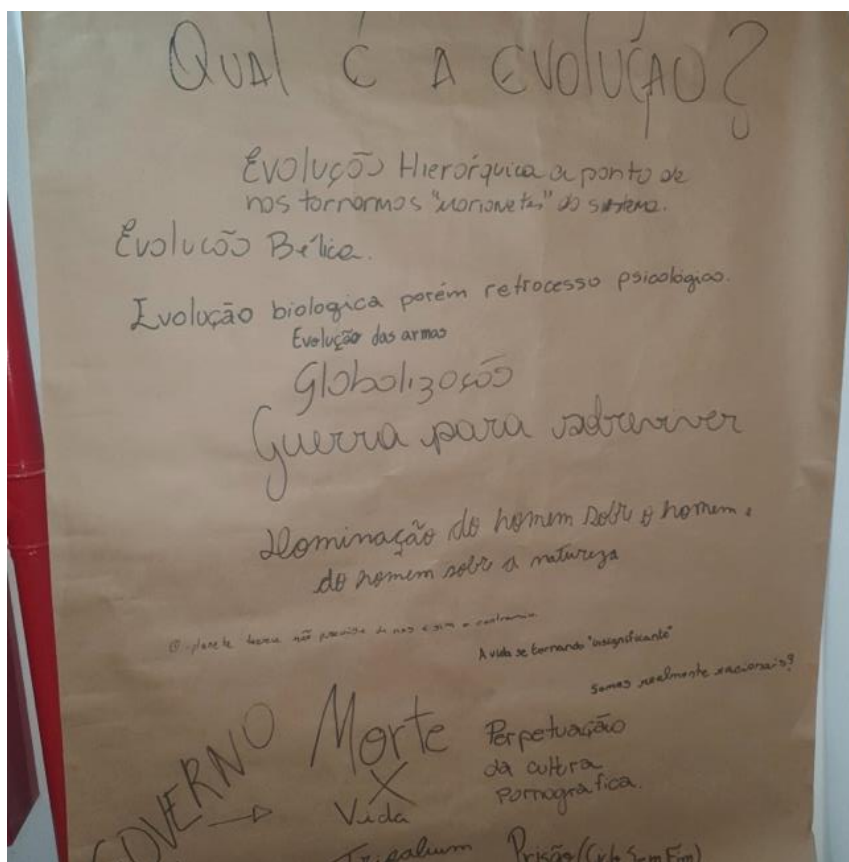 QUAL É A EVOLUÇÃO?
Evolução Hierárquica a ponto de
nos tornarmos "marionetes" do sistema.
Evolução Bélica.
Evolução biologica porém retrocesso psicológico.
Evolução das armas
Globalização
Guerra para sobreviver
Dominação do homem sobre o homem e
do homem sobre a natureza
O planeta terra não precisa de nos e sim o contrario
A vida se tornando "insignificante"
Somos realmente racionais?
GOVERNO → Morte
X
Vida
Perpetuação
da cultura
Pornográfica.
Tripalium
Prisão (Ciclo Sem Fim)